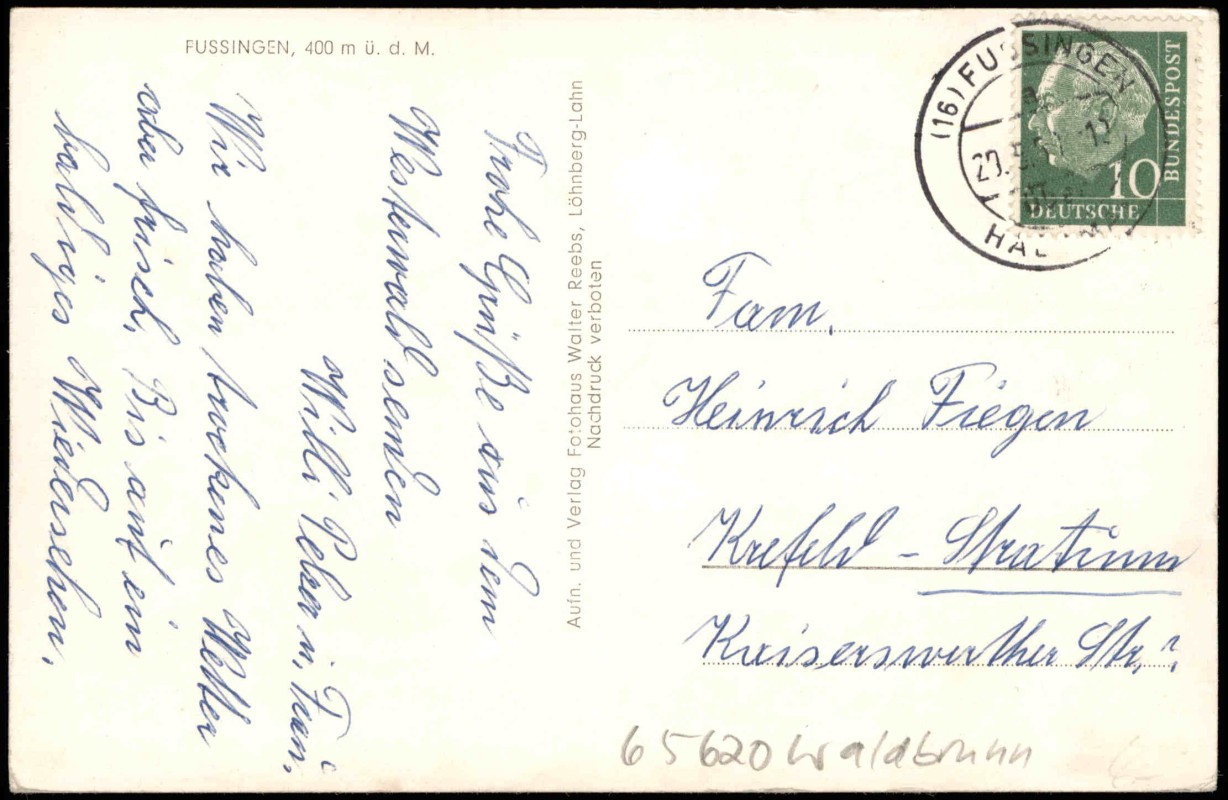 FUSSINGEN, 400 m ü. d. M.
Frohe Grüße aus dem
Westerwald senden
Willi Peter u. Fam.
Wir haben trockenes Wetter
aber frisch, Bis auf ein
baldiges Wiedersehen.
Aufn. und Verlag Fotohaus Walter Reebs, Löhnberg-Lahn
Nachdruck verboten
(16) FUSSINGEN
DEUTSCHE
BUNDESPOST
10
Fam.
Heinrich Fiegen
Krefeld - Stratum
Kaiserswerther Str. ?
65620 Waldbrunn